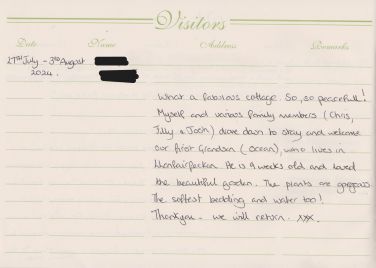 Visitors
Date Name Address Remarks
27th July - 3rd August
2024.
What a fabulous cottage. So, so peaceful!
Myself and various family members (Chris,
Jilly & Josh) drove down to stay and welcome
our first Grandson (Ocean), who lives in
Llanfairfechan. He is 9 weeks old and loved
the beautiful garden. The plants are gorgeous
The softest bedding and water too!
Thankyou - we will return. xxx.